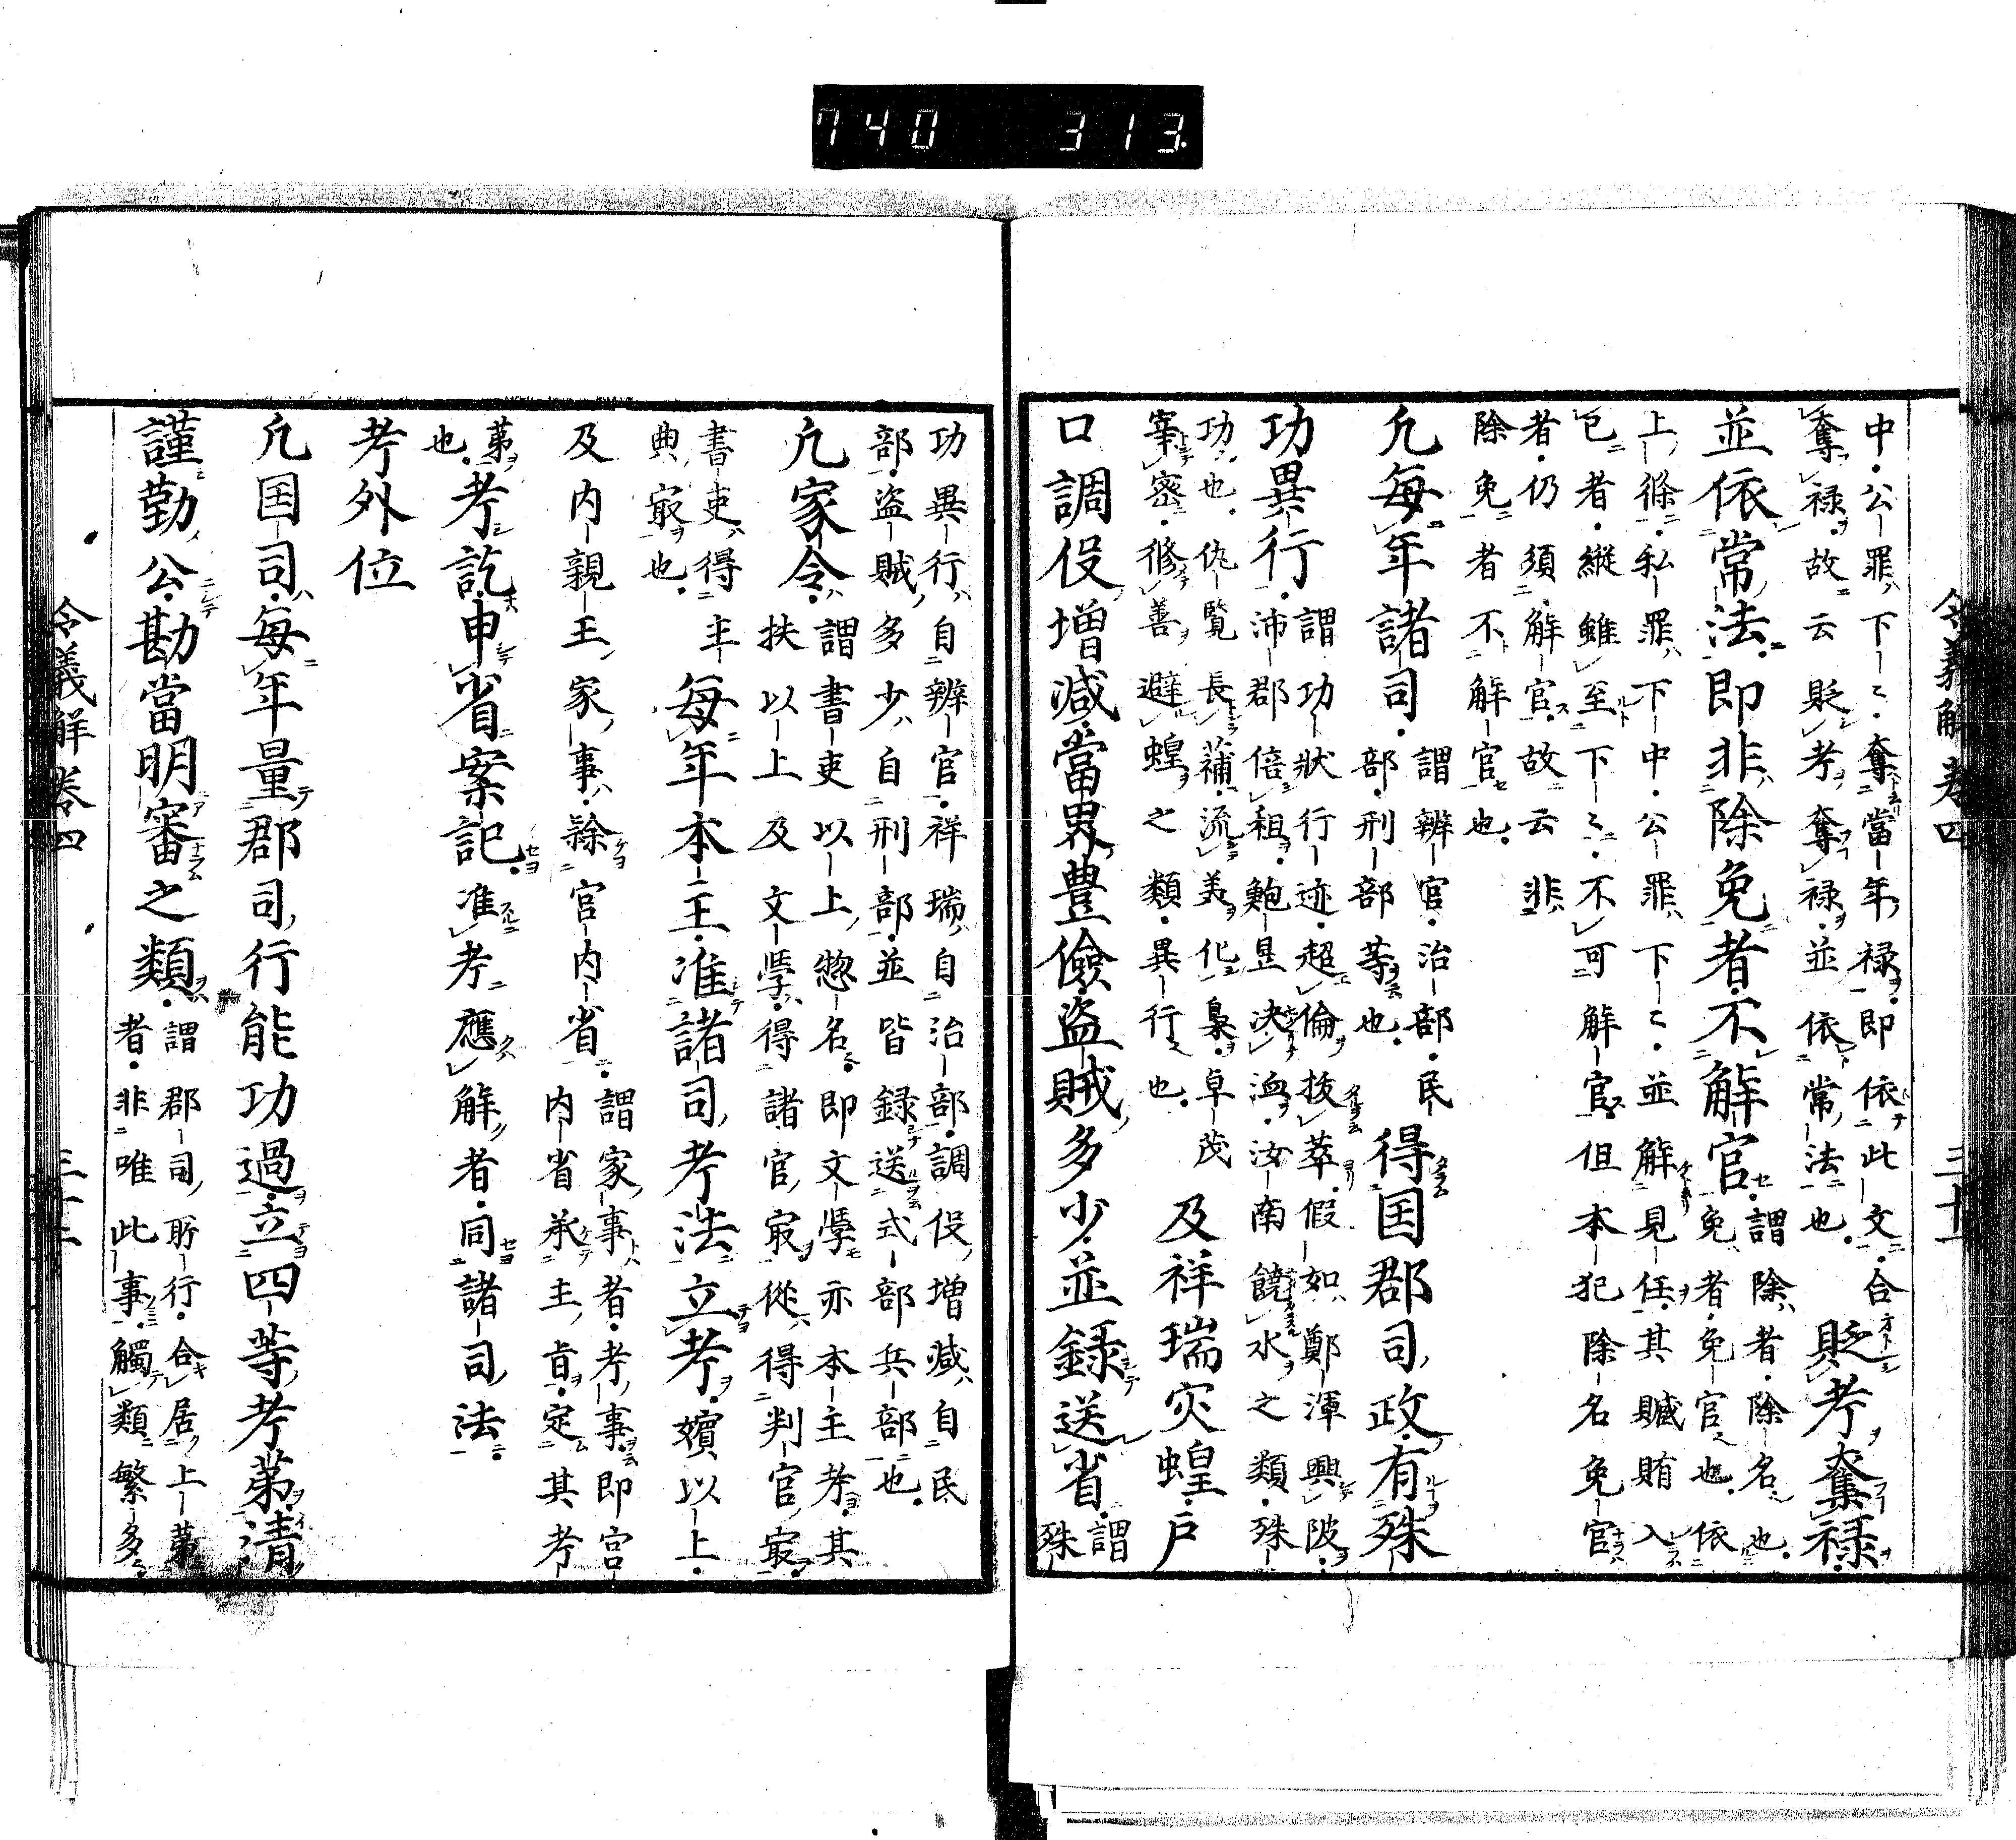 740 313
令義解巻四 三十一
中公罪下々奪當年禄即依此文合
奪禄故云貶考奪禄並依常法也
貶考奪禄
並依常法即非除免者不解官
謂除者除名也
免者免官也依
上條私罪下中公罪下々並解見任其贓賄入
已者縦雖至下々不可解官但本犯除名免官
者仍須解官故云非
除免者不解官也
凡毎年諸司
謂辨官治部民
部刑部等也
得国郡司政有殊
功異行
謂功狀行迹超倫拔萃假如鄭渾興陂
沛郡倍租鮑昱决洫汝南饒水之類殊
功也仇覧長蒲流美化梟卓茂
宰密修善避蝗之類異行也
及祥瑞灾蝗戸
口調役増減當界豊儉盗賊多少並録送省
謂
殊
功異行自辨官祥瑞自治部調役増減自民
部盗賊多少自刑部並皆録送式部兵部也
凡家令
謂書吏以上惣名即文學亦本主考其
扶以上及文學得諸官冣從得判官冣
書吏得主
典冣也
毎年本主准諸司考法立考嬪以上
及内親王家事隷官内省
謂家事者考事即宮
内省承主旨定其考
第
也
考訖申省案記准考應解者同諸司法
考外位
凡国司毎年量郡司行能功過立四等考第清
謹勤公勘當明審之類
謂郡司所行合居上第
者非唯此事觸類繁多
令義解巻四 三十二